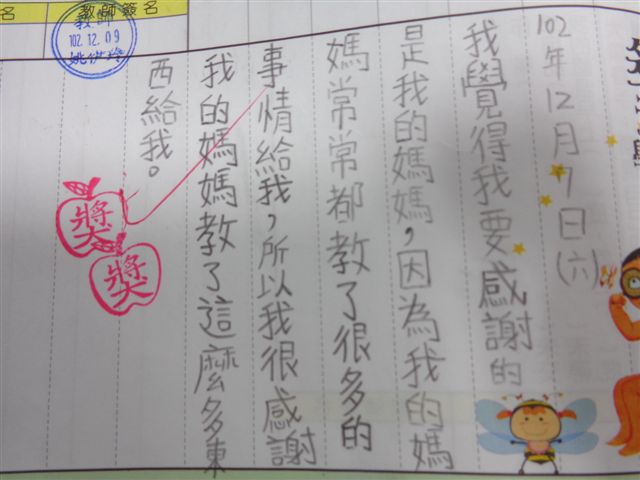 102年12月7日(六)
我覺得我要感謝的
是我的媽媽,因為我的媽
媽常常都教了很多的
事情給我,所以我很感謝
我的媽媽教了這麼多東
西給我。
獎
獎
教師簽名
名
教師
102.12.09